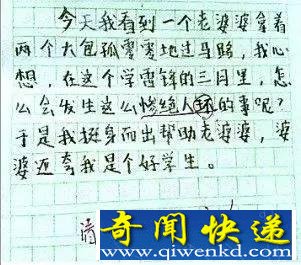 今天我看到一个老婆婆拿着
两个大包孤零零地过马路,我心
想,在这个学雷锋的三月里,怎
么会发生这么惨绝人的事呢?
于是我挺身而出帮助老婆婆,婆
婆还夸我是个好学生。
清
奇闻快递
www.qiwenkd.com